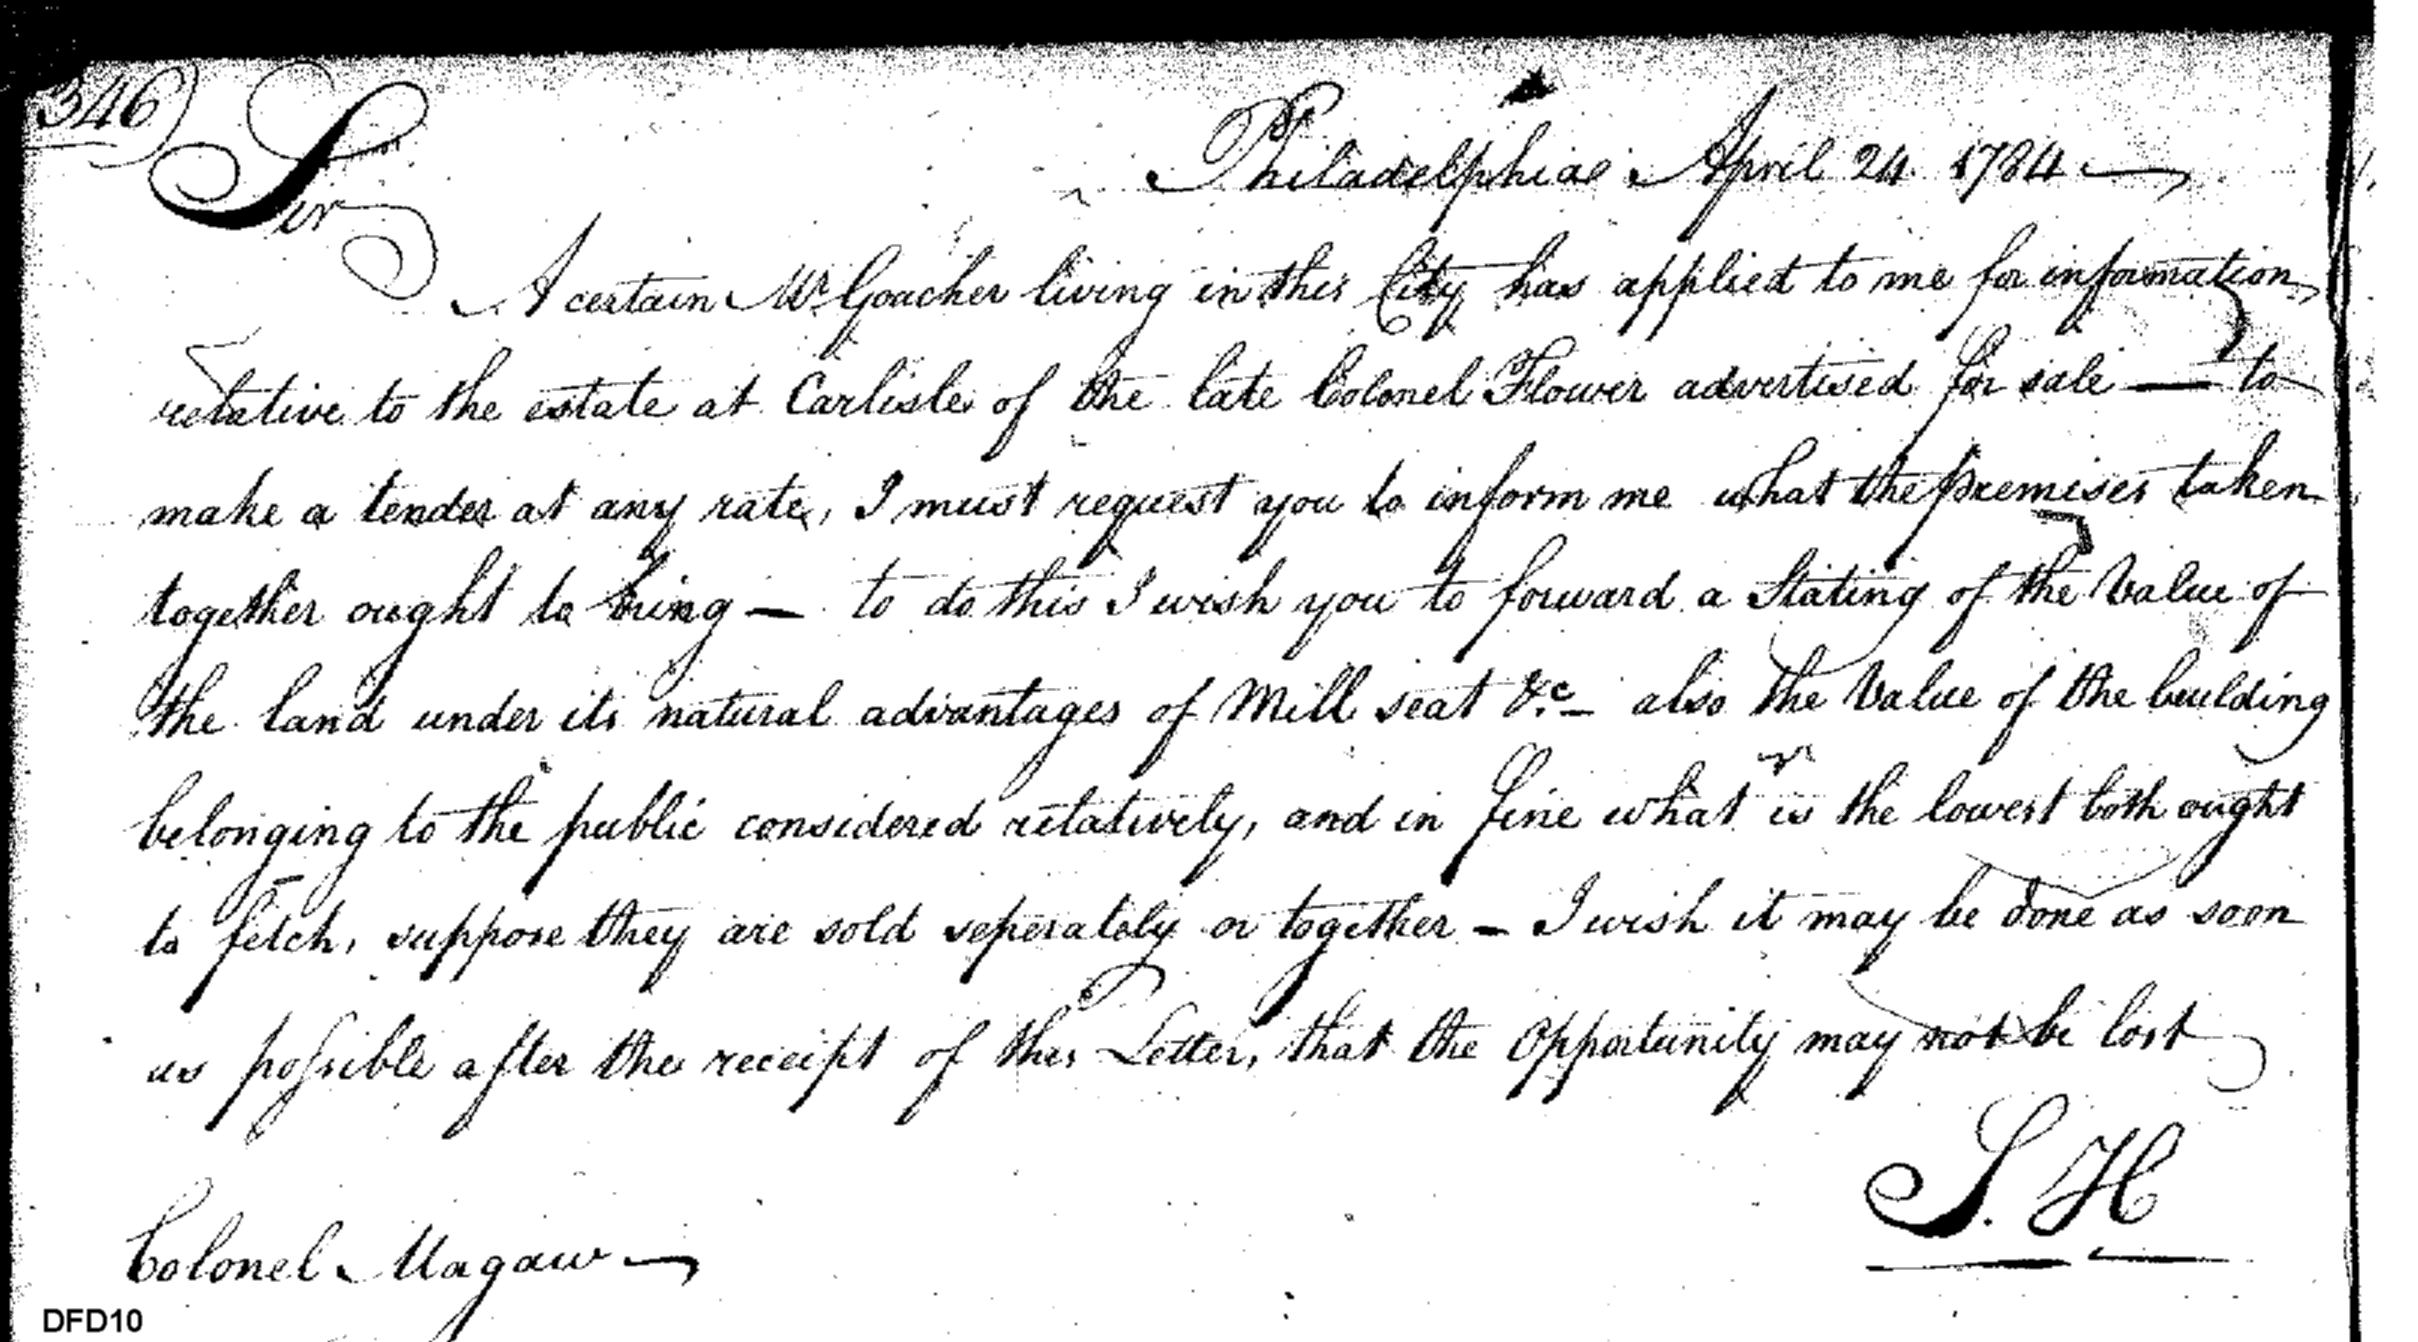 346)
Philadelphia April 24 1784
Sir
A certain Mr Goacher living in this City has applied to me for information
relative to the estate at Carlisle of the late Colonel Flower advertised for sale — to
make a tender at any rate, I must request you to inform me what the premises taken
together ought to bring — to do this I wish you to forward a Stating of the Value of
the land under its natural advantages of Mill seat &c — also the Value of the building
belonging to the public considered relatively, and in fine what is the lowest both ought
to fetch, suppose they are sold seperately or together — I wish it may be done as soon
as possible after the receipt of this Letter, that the Opportunity may not be lost
S. H
Colonel Magaw —
DFD10